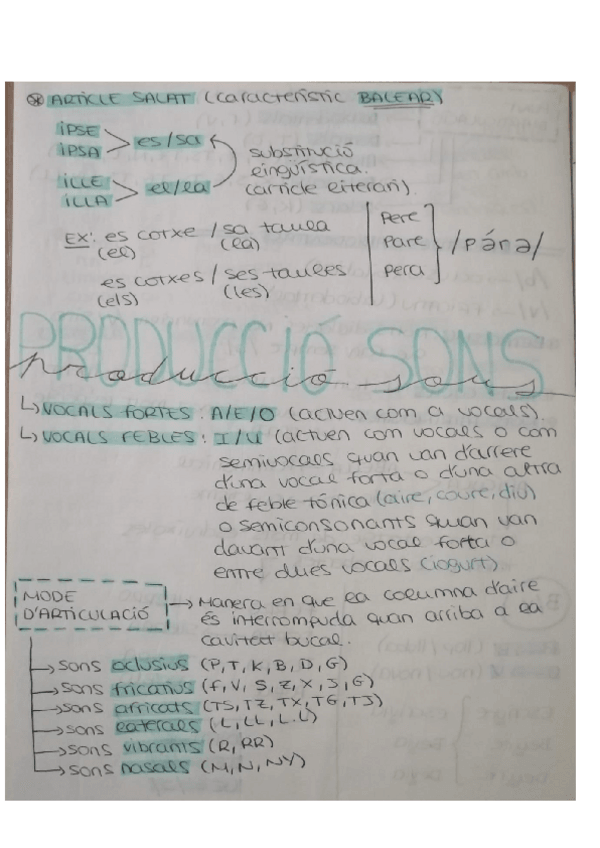 ⊛ ARTICLE SALAT (característic BALEAR)
IPSE
IPSA > es/sa
ILLE
ILLA > el/la
substitució
lingüística.
(article literari).
EX: es cotxe / sa taula
(el) (la)
es cotxes / ses taules
(els) (les)
Pere
Pare
Pera
/párə/
PRODUCCIÓ SONS
producció sons
↳ VOCALS FORTES: A/E/O (actuen com a vocals).
↳ VOCALS FEBLES: I/U (actuen com vocals o com
semivocals quan van darrere
d'una vocal forta o d'una altra
de feble tònica (aire, coure, diu)
o semiconsonants quan van
davant d'una vocal forta o
entre dues vocals (iogurt).
MODE
D'ARTICULACIÓ → Manera en que la columna d'aire
és interrompuda quan arriba a la
cavitat bucal.
→ sons oclusius (P, T, K, B, D, G)
→ sons fricatius (F, V, S, Z, X, J, G)
→ sons africats (TS, TZ, TX, TG, TJ)
→ sons laterals (L, LL, L·L)
→ sons vibrants (R, RR)
→ sons nasals (M, N, NY)